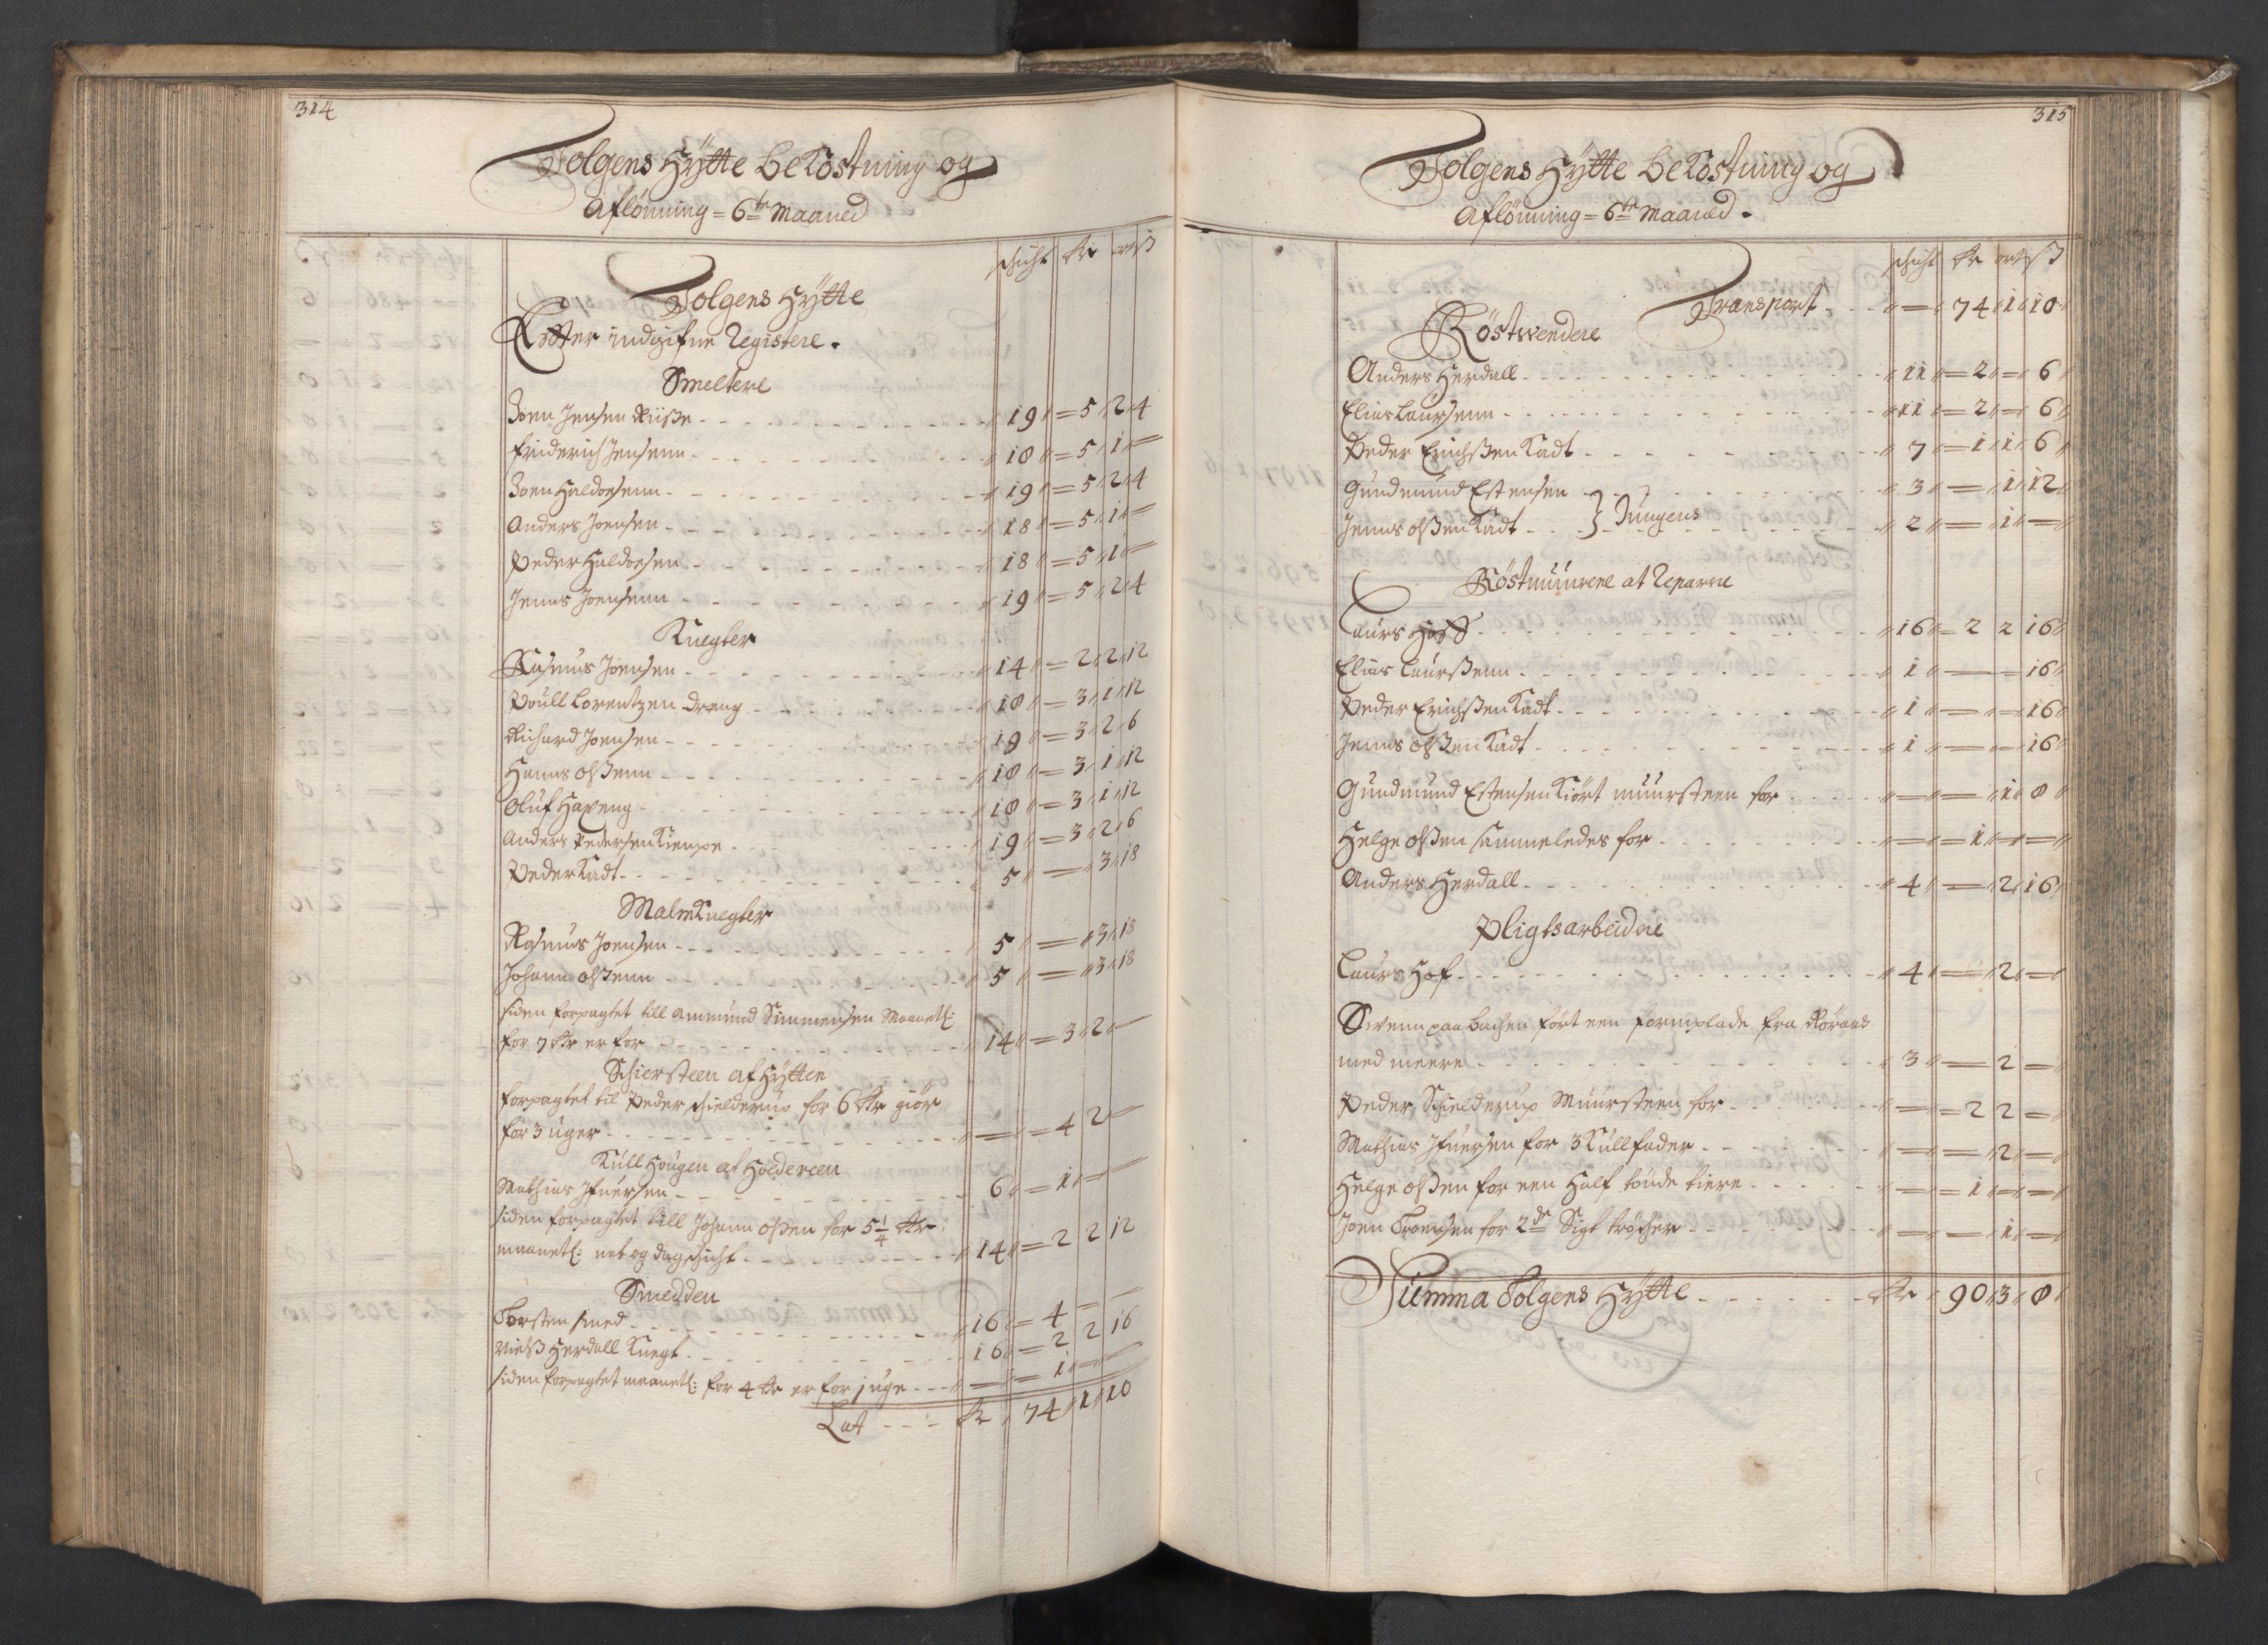 314
Tolgens Hÿtte beKostning og
Aflönning = 6te Maaned
schicht Rr ort ß
Tolgens Hÿtte
Efter indgifne Registere.
Smeltere
Joen Jensen Riiße - - - 19 = 5 2 4
Friderich Jensenn - - - 18 = 5 1 =
Joen Haldoesenn - - - 19 = 5 2 4
Anders Joensen - - - 18 = 5 1 =
Peder Haldoesen - - - 18 = 5 1 =
Jenns Joensenn - - - 19 = 5 2 4
Knegter
Rasmus Joensen - - - 14 = 2 2 12
Poull Lorentzen Dreng - - - 18 = 3 1 12
Richard Joensen - - - 19 = 3 2 6
Hanns Olßenn - - - 18 = 3 1 12
Oluf Haveng - - - 18 = 3 1 12
Anders Pedersen Kiempe - - - 19 = 3 2 6
Peder Kadt - - - 5 = 3 18
MalmKnegter
Rasmus Joensen - - - 5 = 3 18
Johann Olßenn - - - 5 = 3 18
siden forpagtet till Ammund Simmensen Maanetl:
for 7 Rr er for - - - 14 = 3 2 =
Schiersteen af Hÿtten
forpagtet til Peder Schielderup for 6 Rr giör
for 3 uger - - - = = 4 2 =
Kull Hougen at Holde reen
Mathias Ifuersen - - - 6 = 1 =
siden forpagtet till Johann Olßen for 5 1/4 Rr
maanetl: nat og dag schicht - - - 14 = 2 2 12
Smedden
Torsten smed - - - 16 = 4 = =
Nielß Herdall Knegt - - - 16 = 2 2 16
siden forpagtet maanetl: for 4 Rr er for 1 uge - - - = = 1 = =
Lat - - - Rr 74 1 10
315
Tolgens Hÿtte beKostning og
Aflönning = 6te Maaned.
schicht Rr ort ß
Transport - - - = 74 1 10
Röstwendere
Anders Herdall - - - 11 = 2 = 6
Elias Laursenn - - - 11 = 2 = 6
Peder Erichßen Kadt - - - 7 = 1 1 6
Gundmund Estensen - - - 3 = 1 12
Jenns Olßen Kadt - - - } Jungens 2 = 1 =
Röstmuurene at Reparere
Laurs Hoff - - - 16 = 2 2 16
Elias Laurßenn - - - 1 = = 16
Peder Erichßen Kadt - - - 1 = = 16
Jenns Olßen Kadt - - - 1 = = 16
Gundmund Estensen Kiört muursteen for - - - = = 1 8
Helge Olßen sammeledes for - - - = = 1 = =
Anders Herdall - - - 4 = 2 16
Pligtsarbeidere
Laurs Hof - - - 4 = 2 =
Swenn paa bachen fört een formplade fra Röraas
med meere - - - 3 = 2 =
Peder Schielderup Muursteen for - - - = = 2 2 =
Mathias Ifuersen for 3 Kullfader - - - = = 2 =
Helge Olßen for een Half tönde tiere - - - = = 1 = =
Joen Troensen for 2de Sigt - - - = = 1 =
Summa Tolgens Hÿtte - - - Rr 90 3 8